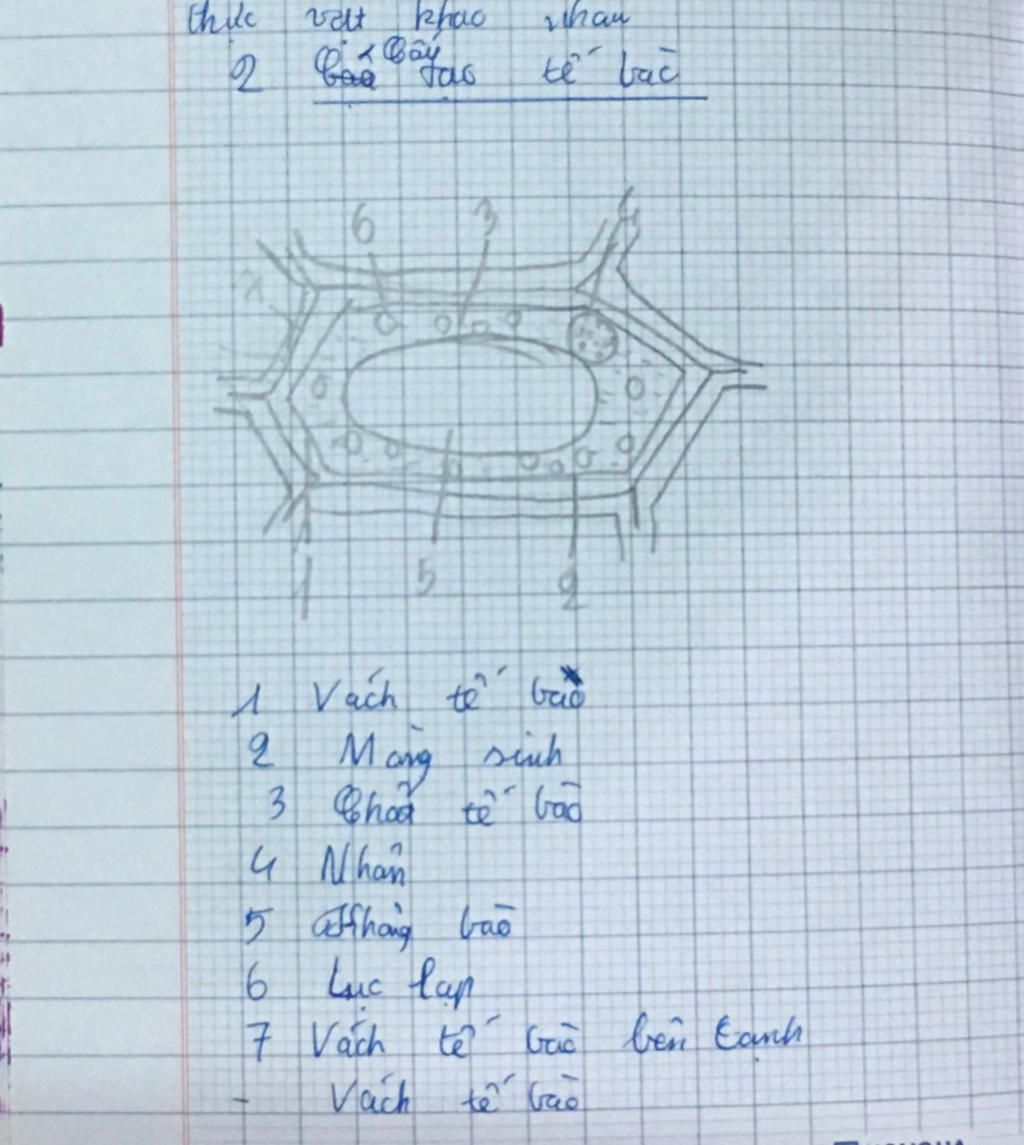 thực vật khác nhau
2 Cấu tạo tế bào
6 3 4
7
1 5 2
1 Vách tế bào
2 Màng sinh
3 Chất tế bào
4 Nhân
5 Không bào
6 Lục lạp
7 Vách tế bào bên cạnh
- Vách tế bào